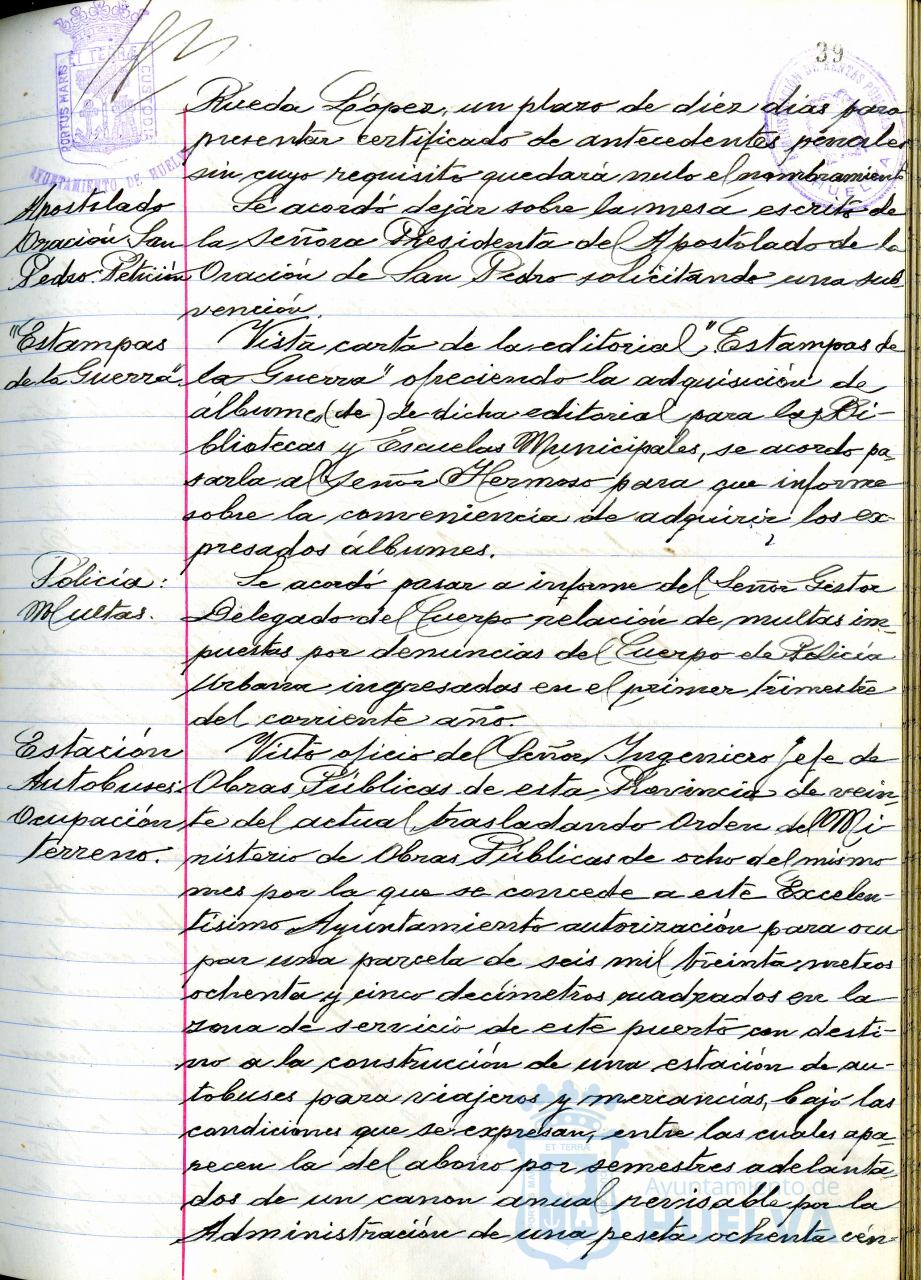 39
PORTUS MARIS ET TERRÆ CUSTODIA
AYUNTAMIENTO DE HUELVA
HUELVA
Rueda López, un plazo de diez días para
presentar certificado de antecedentes penales
sin cuyo requisito quedará nulo el nombramiento
Apostolado
Oración San
Pedro. Petición
Se acordó dejar sobre la mesa escrito de
la Señora Presidenta del Apostolado de la
Oración de San Pedro solicitando una sub-
vención.
"Estampas
de la Guerra".
Vista carta de la editorial "Estampas de
la Guerra" ofreciendo la adquisición de
álbumes (de) de dicha editorial para las Bi-
bliotecas y Escuelas Municipales, se acordo pa-
sarla al Señor Hermoso para que informe
sobre la conveniencia de adquirir los ex-
presados álbumes.
Policía:
Multas.
Se acordó pasar a informe del Señor Gestor
Delegado del Cuerpo relación de multas im-
puestas por denuncias del Cuerpo de Policía
Urbana ingresadas en el primer trimestre
del corriente año.
Estación
Autobuses:
Ocupación
terreno.
Visto oficio del Señor Ingeniero Jefe de
Obras Públicas de esta Provincia de vein-
te del actual, trasladando Orden del Mi-
nisterio de Obras Públicas de ocho del mismo
mes por la que se concede a este Excelen-
tísimo Ayuntamiento autorización para ocu-
par una parcela de seis mil treinta metros
ochenta y cinco decímetros cuadrados en la
zona de servicio de este puerto con desti-
no a la construcción de una estación de au-
tobuses para viajeros y mercancías, bajo las
condiciones que se expresan, entre las cuales apa-
recen la del abono por semestres adelanta-
dos de un canon anual revisable por la
Administración de una peseta ochenta cén-
Ayuntamiento de
HUELVA